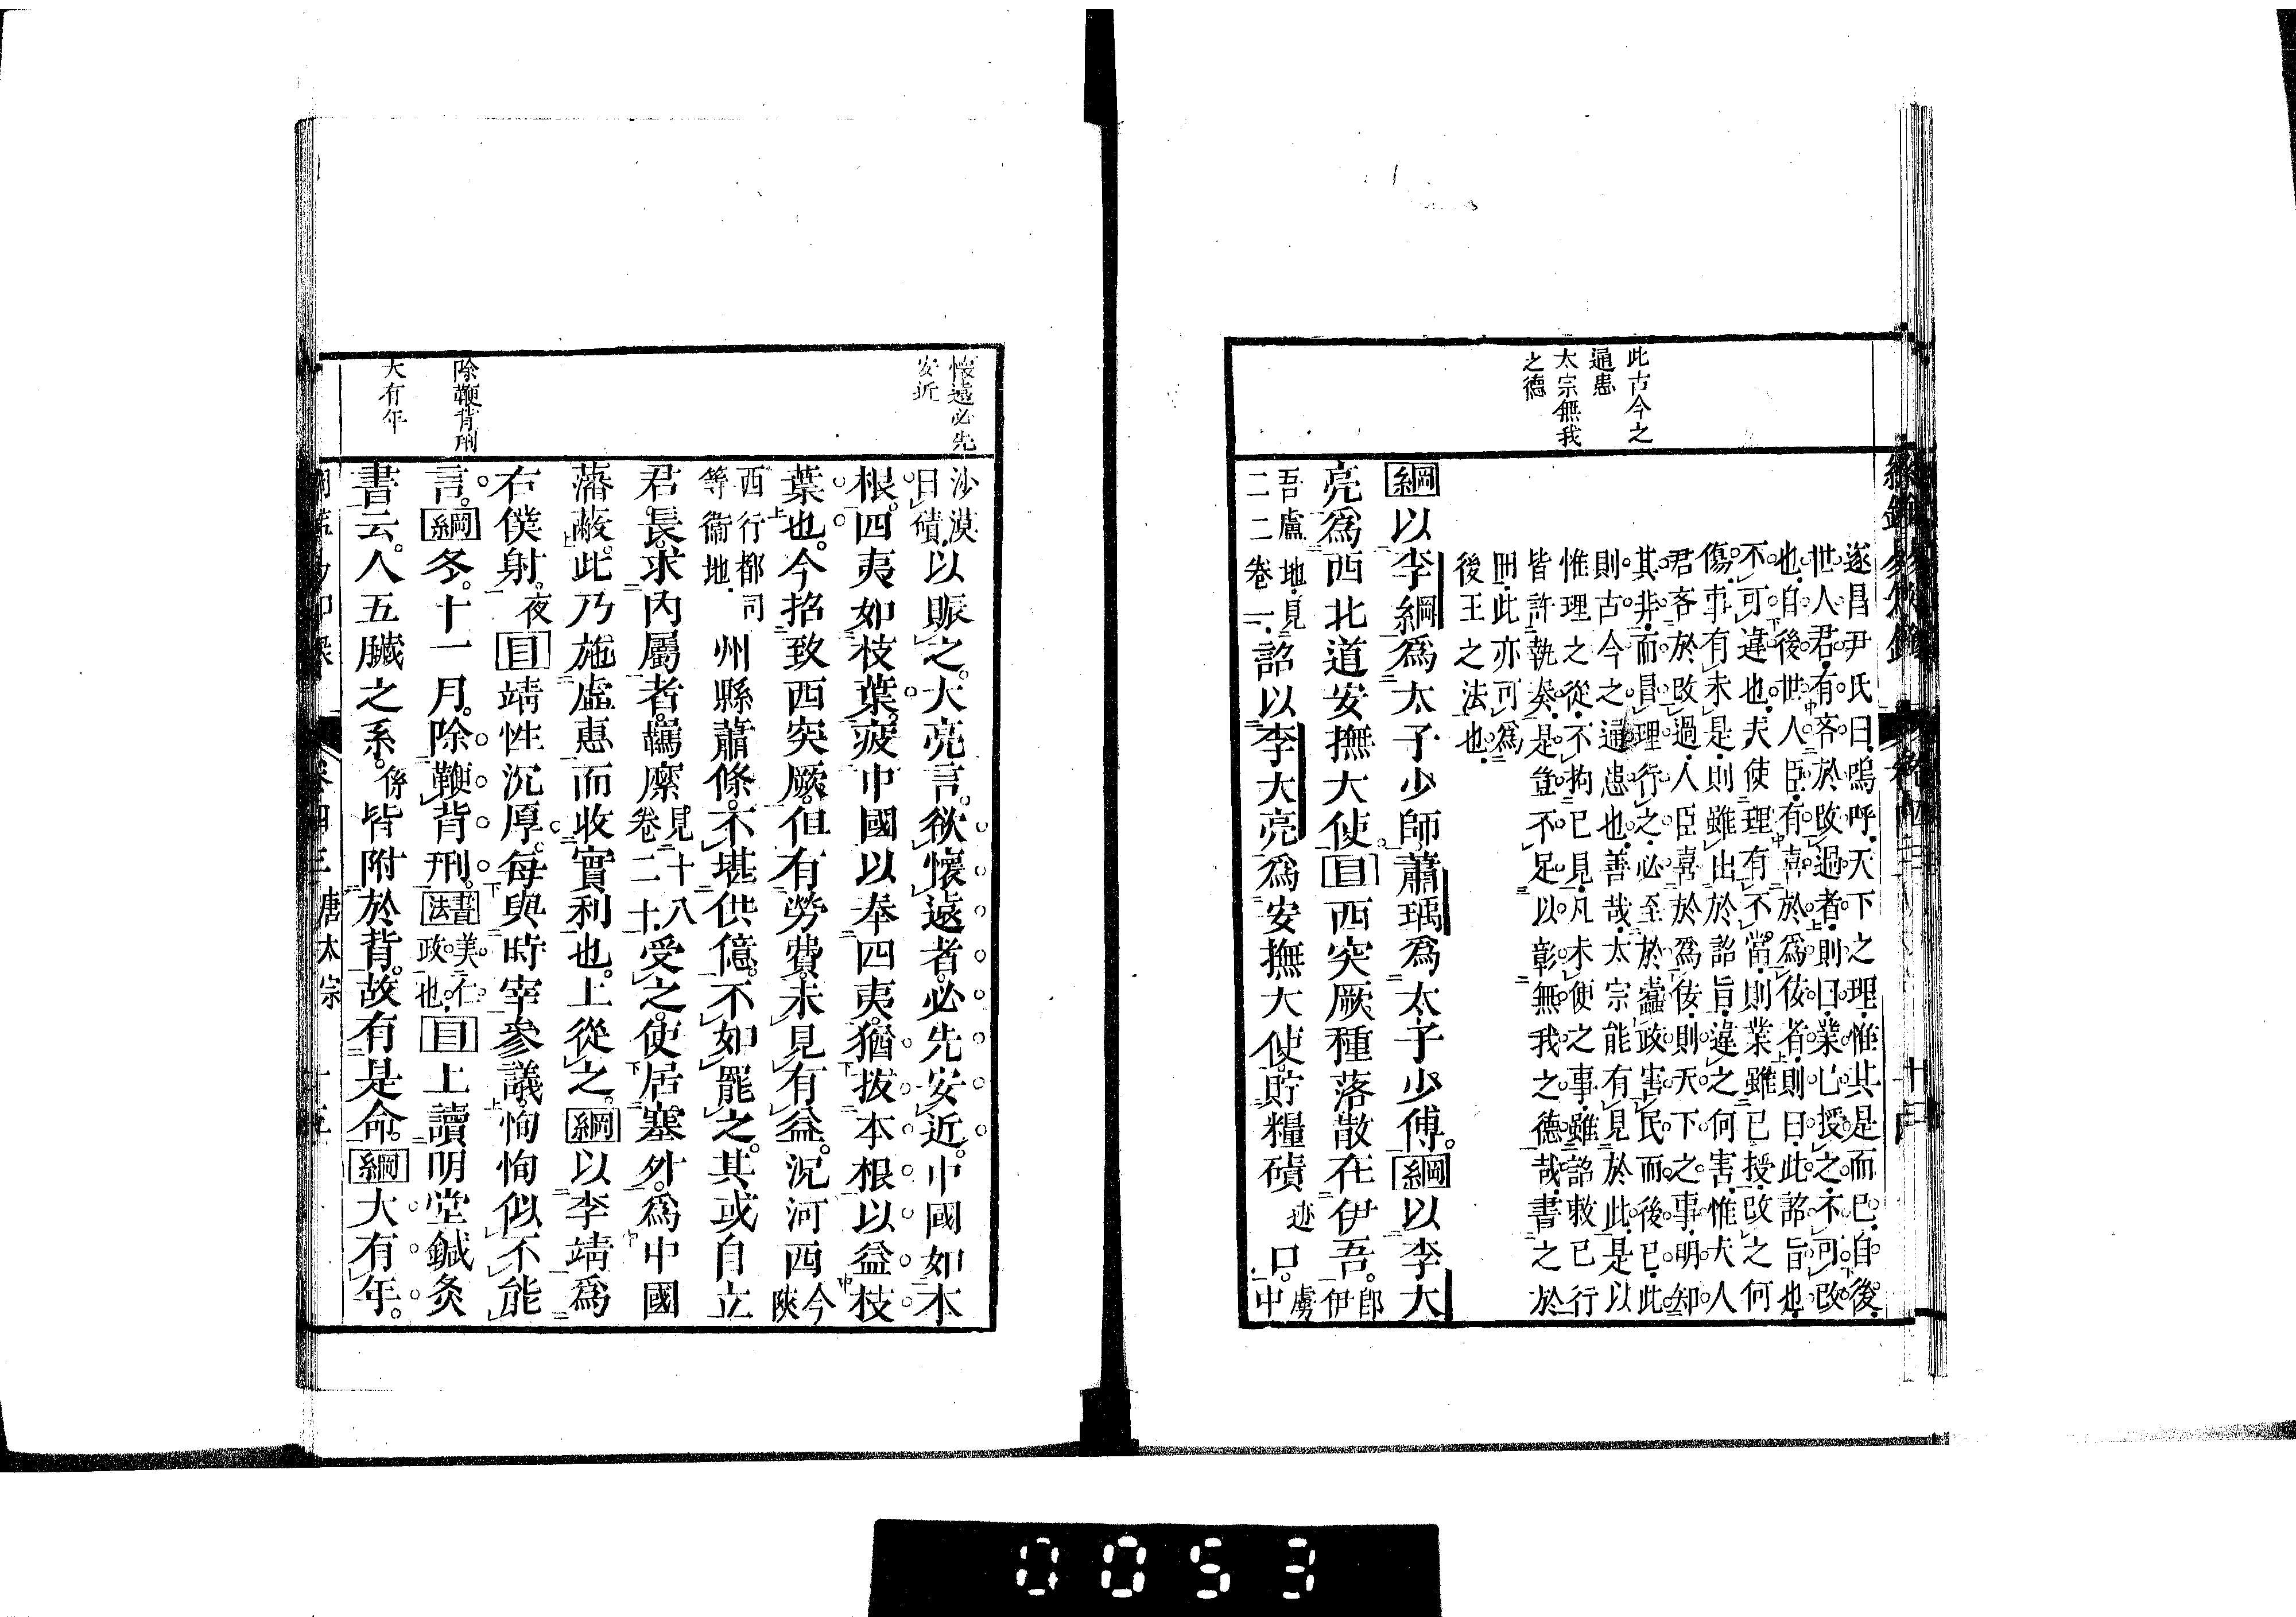 此古今之
通患
太宗無我
之德
遂昌尹氏曰嗚呼天下之理惟其是而已自後
世人君有吝於改過者則曰業已授之不可改
也自後世人臣有喜於為佞者則曰此詔旨也
不可違也夫使理有不當則業雖已授改之何
傷事有未是則雖出於詔旨違之何害惟夫人
君吝於改過人臣喜於爲佞則天下之事明知
其非而冒理行之必至於蠹政害民而後已此
則古今之通患也善哉太宗能有見於此是以
惟理之從不拘已見凡未便之事雖詔敕已行
皆許執奏是豈不足以彰無我之德哉書之於
冊此亦可爲
後王之法也
綱以李綱爲太子少師蕭瑀爲太子少傅綱以李大
亮爲西北道安撫大使目西突厥種落散在伊吾伊郎
吾盧地見
二二卷一詔以李大亮爲安撫大使貯糧磧迹口中虜
懷遠必先
安近
除鞭背刑
大有年
沙漠
曰磧以賑之大亮言欲懷遠者必先安近中國如本
根四夷如枝葉疲中國以奉四夷猶拔本根以益枝
葉也今招致西突厥但有勞費未見有益況河西今陝
西行都司
等衞地州縣蕭條不堪供億不如罷之其或自立
君長求內屬者羈縻見十八
卷二十受之使居塞外爲中國
藩蔽此乃施虛惠而收實利也上從之綱以李靖爲
右僕射夜目靖性沉厚每與時宰參議恂恂似不能
言綱冬十一月除鞭背刑書法美仁
政也目上讀明堂鍼灸
書云人五臟之系係皆附於背故有是命綱大有年
卷四三 唐太宗
0053